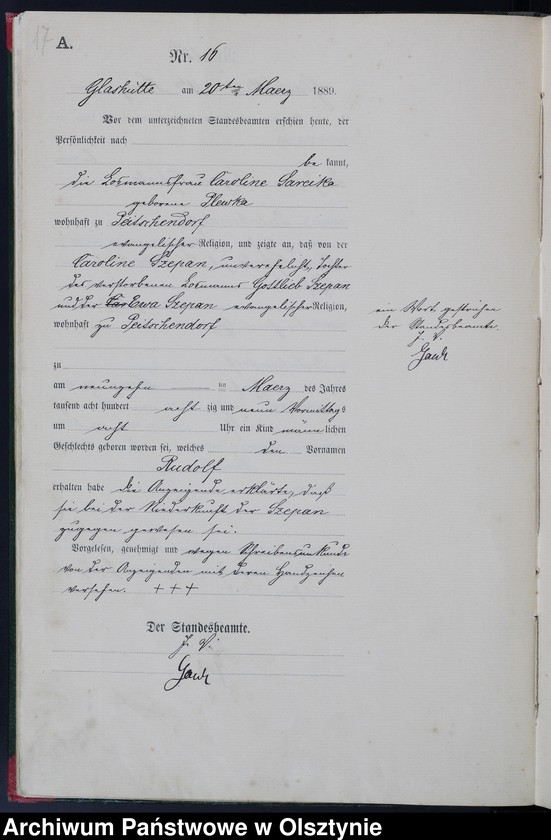 17
A.
Nr. 16
Glashütte am 20ten Maerz 1889.
Vor dem unterzeichneten Standesbeamten erschien heute, der
Persönlichkeit nach
be kannt,
die Losmannsfrau Caroline Sareika
geborene Plewka
wohnhaft zu Peitschendorf
evangelischer Religion, und zeigte an, daß von der
Caroline Szepan, unverehelicht, Tochter
des verstorbenen Losmanns Gottlieb Szepan
und der Ewa Szepan evangelischer Religion,
wohnhaft zu Peitschendorf
zu
am neunzehn ten Maerz des Jahres
tausend acht hundert acht zig und neun Vormittags
um acht Uhr ein Kind männlichen
Geschlechts geboren worden sei, welches den Vornamen
Rudolf
erhalten habe die Anzeigende erklärte, daß
sie bei der Niederkunft der Szepan
zugegen gewesen sei.
Vorgelesen, genehmigt und wegen Schreibensunkunde
von der Anzeigenden mit deren Handzeichen
versehen. + + +
Der Standesbeamte.
J. V.
ein Wort gestrichen
der Standesbeamte
J. V.
Archiwum Państwowe w Olsztynie